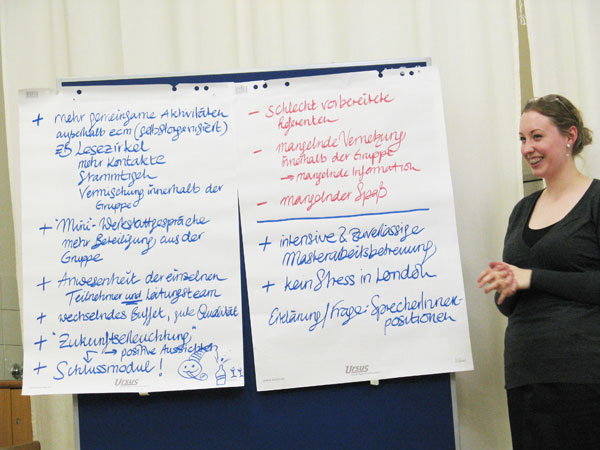 + mehr gemeinsame Aktivitäten
außerhalb ecm (selbstorganisiert)
zB Lesezirkel
mehr Kontakte
Stammtisch
Vermischung innerhalb der
Gruppe
+ "Mini"-Werkstattgespräche
mehr Beteiligung aus der
Gruppe
+ Anwesenheit der einzelnen
Teilnehmer und Leitungsteam
+ wechselndes Buffet, gute Qualität
+ "Zukunftserleuchtung"
→ positive Aussichten
+ Schlussmodul!
URSUS
- schlecht vorbereitete
Referenten
- mangelnde Vernetzung
innerhalb der Gruppe
→ mangelnde Information
- mangelnder Spaß
+ intensive & zuverlässige
Masterarbeitsbetreuung
+ kein Stress in London
Erklärung/Frage: SprecherInnen-
positionen
URSUS